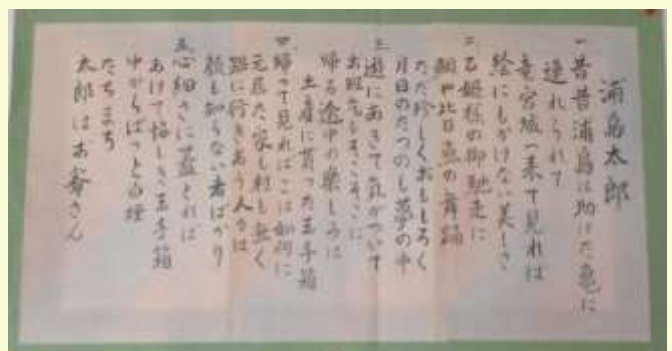 浦島太郎
一、昔昔浦島は助けた亀に
連れられて
竜宮城へ来て見れば
絵にもかけない美しさ
二、乙姫様の御馳走に
鯛や比目魚の舞踊
ただ珍しくおもしろく
月日のたつのも夢の中
三、遊にあきて気がついて
お暇乞もそこそこに
帰る途中の楽しみは
土産に貰った玉手箱
四、帰って見ればこは如何に
元居た家も村も無く
路に行きあう人々は
顔も知らない者ばかり
五、心細さに蓋とれば
あけて悔しき玉手箱
中からぱっと白煙
たちまち
太郎はお爺さん